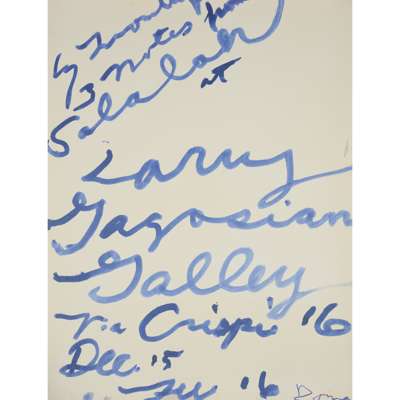 Cy Twombly
3 Notes from
Salalah
at
Larry
Gagosian
Galley
Via Crispi '16
Dec. 15
Rome